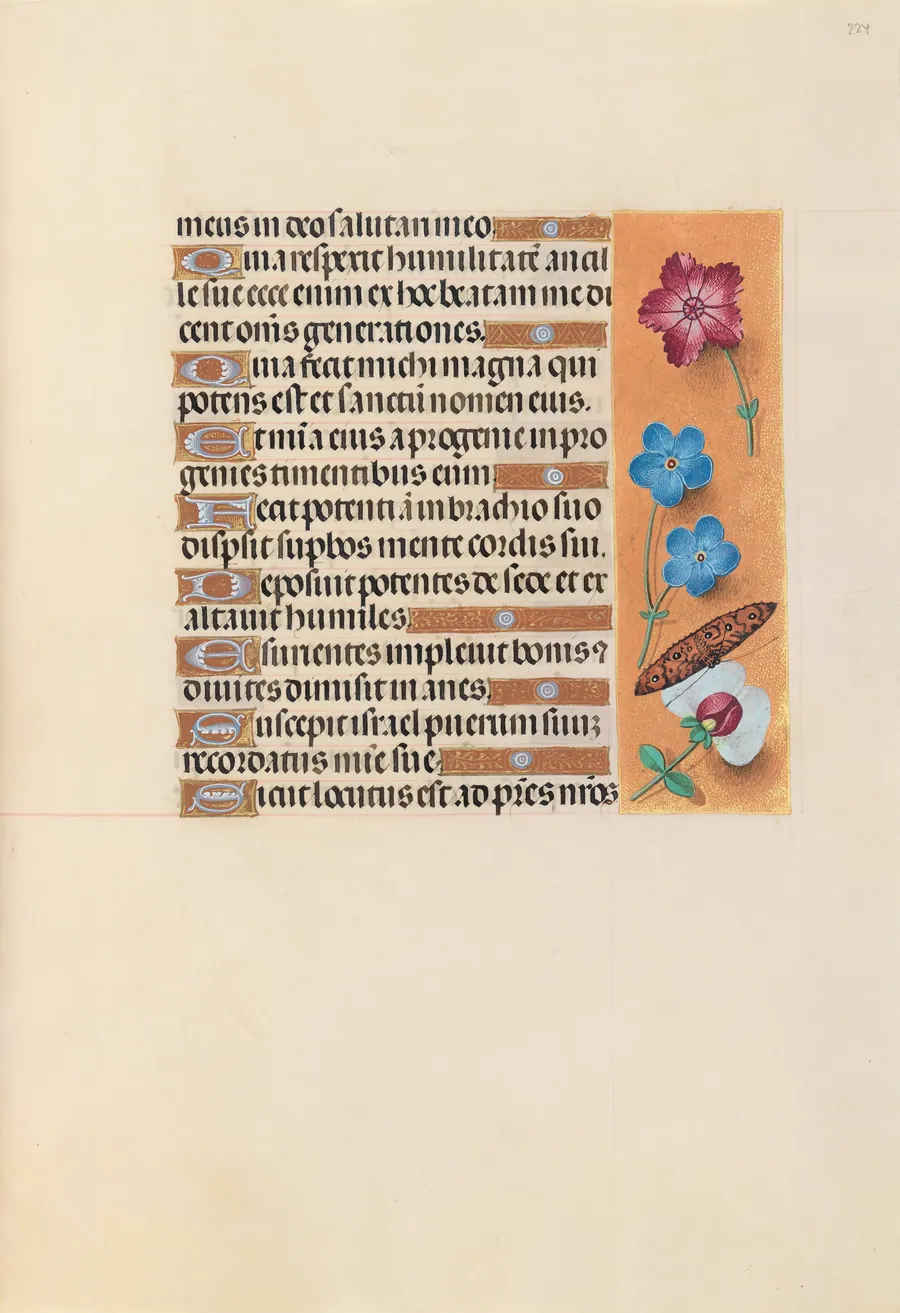 224
meus in deo salutari meo.
Quia respexit humilitatē ancil
le sue ecce enim ex hoc beatam me di
cent om̄s generationes.
Quia fecit michi magna qui
potens est et sanctū nomen eius.
Et mīa eius a progenie in pro
genies timentibus eum.
Fecit potentiā in brachio suo
dispsit supbos mente cordis sui.
Deposuit potentes de sede et ex
altauit humiles.
Esurientes impleuit bonis ꝯ
diuites dimisit inanes.
Suscepit israel puerum suuꝫ
recordatus mīe sue.
Sicut locutus est ad pr̄es nr̄os